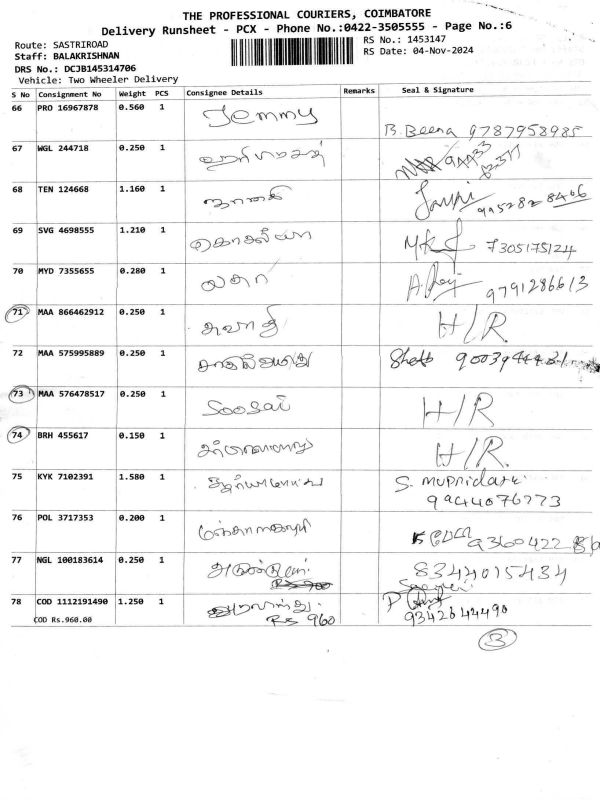 THE PROFESSIONAL COURIERS, COIMBATORE
Delivery Runsheet - PCX - Phone No.:0422-3505555 - Page No.:6
Route: SASTRIROAD
RS No.: 1453147
Staff: BALAKRISHNAN
RS Date: 04-Nov-2024
DRS No.: DCJB145314706
Vehicle: Two Wheeler Delivery
S No Consignment No Weight PCS Consignee Details Remarks Seal & Signature
66 PRO 16967878 0.560 1 Jemmy
B. Beena 9787958985
67 WGL 244718 0.250 1
68 TEN 124668 1.160 1 ஜானகி
9952828466
69 SVG 4698555 1.210 1 கௌசல்யா 7305175124
70 MYD 7355655 0.280 1 லதா 9791286613
71 MAA 866462912 0.250 1 சுவாதி H/R
72 MAA 575995889 0.250 1
73 MAA 576478517 0.250 1 Soosai H/R
74 BRH 455617 0.150 1 H/R.
75 KYK 7102391 1.580 1 S.
9944076773
76 POL 3717353 0.200 1
77 NGL 100183614 0.250 1 8344015434
78 COD 1112191490 1.250 1
COD Rs.960.00 Rs 960 9342644490
3